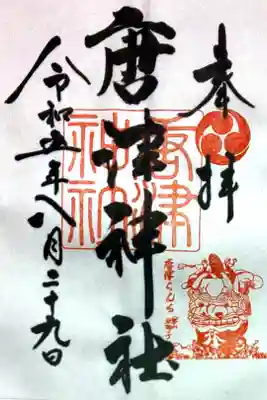 奉拝
唐津神社
唐津神社
令和五年八月二十九日
唐津くんち